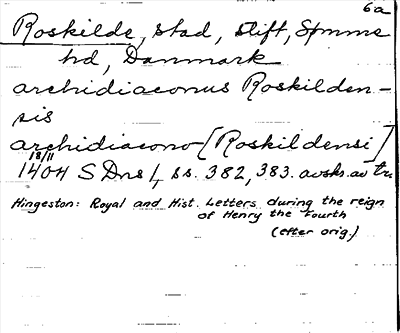 6a
Roskilde, stad, stift, Sømme
hd, Danmark
archidiaconus Roskilden-
sis
archidiacono [Roskildensi]
18/11
1404 SDns 1, ss. 382, 383. avskr. av tr.
Hingeston: Royal and Hist. Letters during the reign
of Henry the Fourth
(efter orig.)